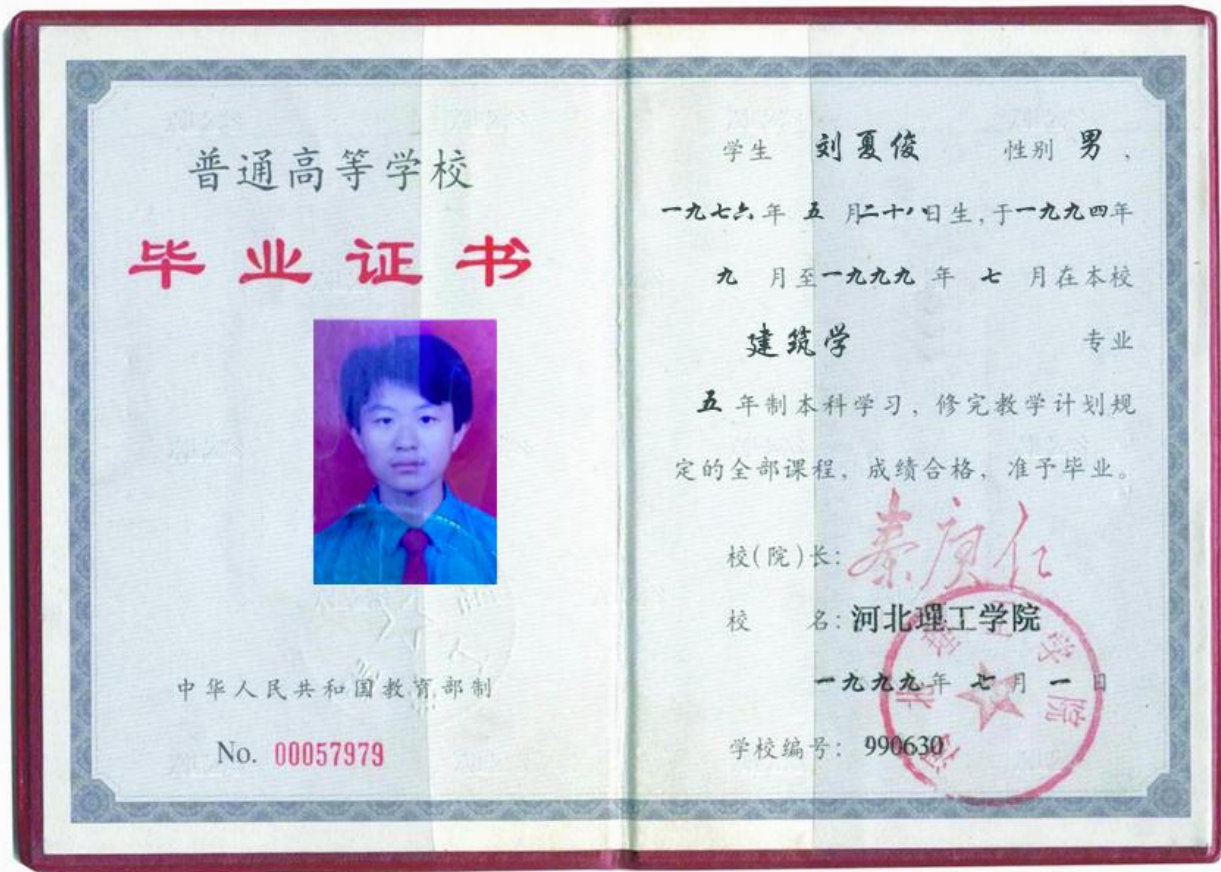 普通高等学校
毕业证书
中华人民共和国教育部制
No. 00057979
学生 刘夏俊 性别 男,
一九七六年 五 月二十八日生,于一九九四年
九 月至一九九九 年 七 月在本校
建筑学 专业
五 年制本科学习,修完教学计划规
定的全部课程,成绩合格,准予毕业。
校(院)长:
校 名: 河北理工学院
一九九九年 七 月 一 日
学校编号: 990630
河北理工学院